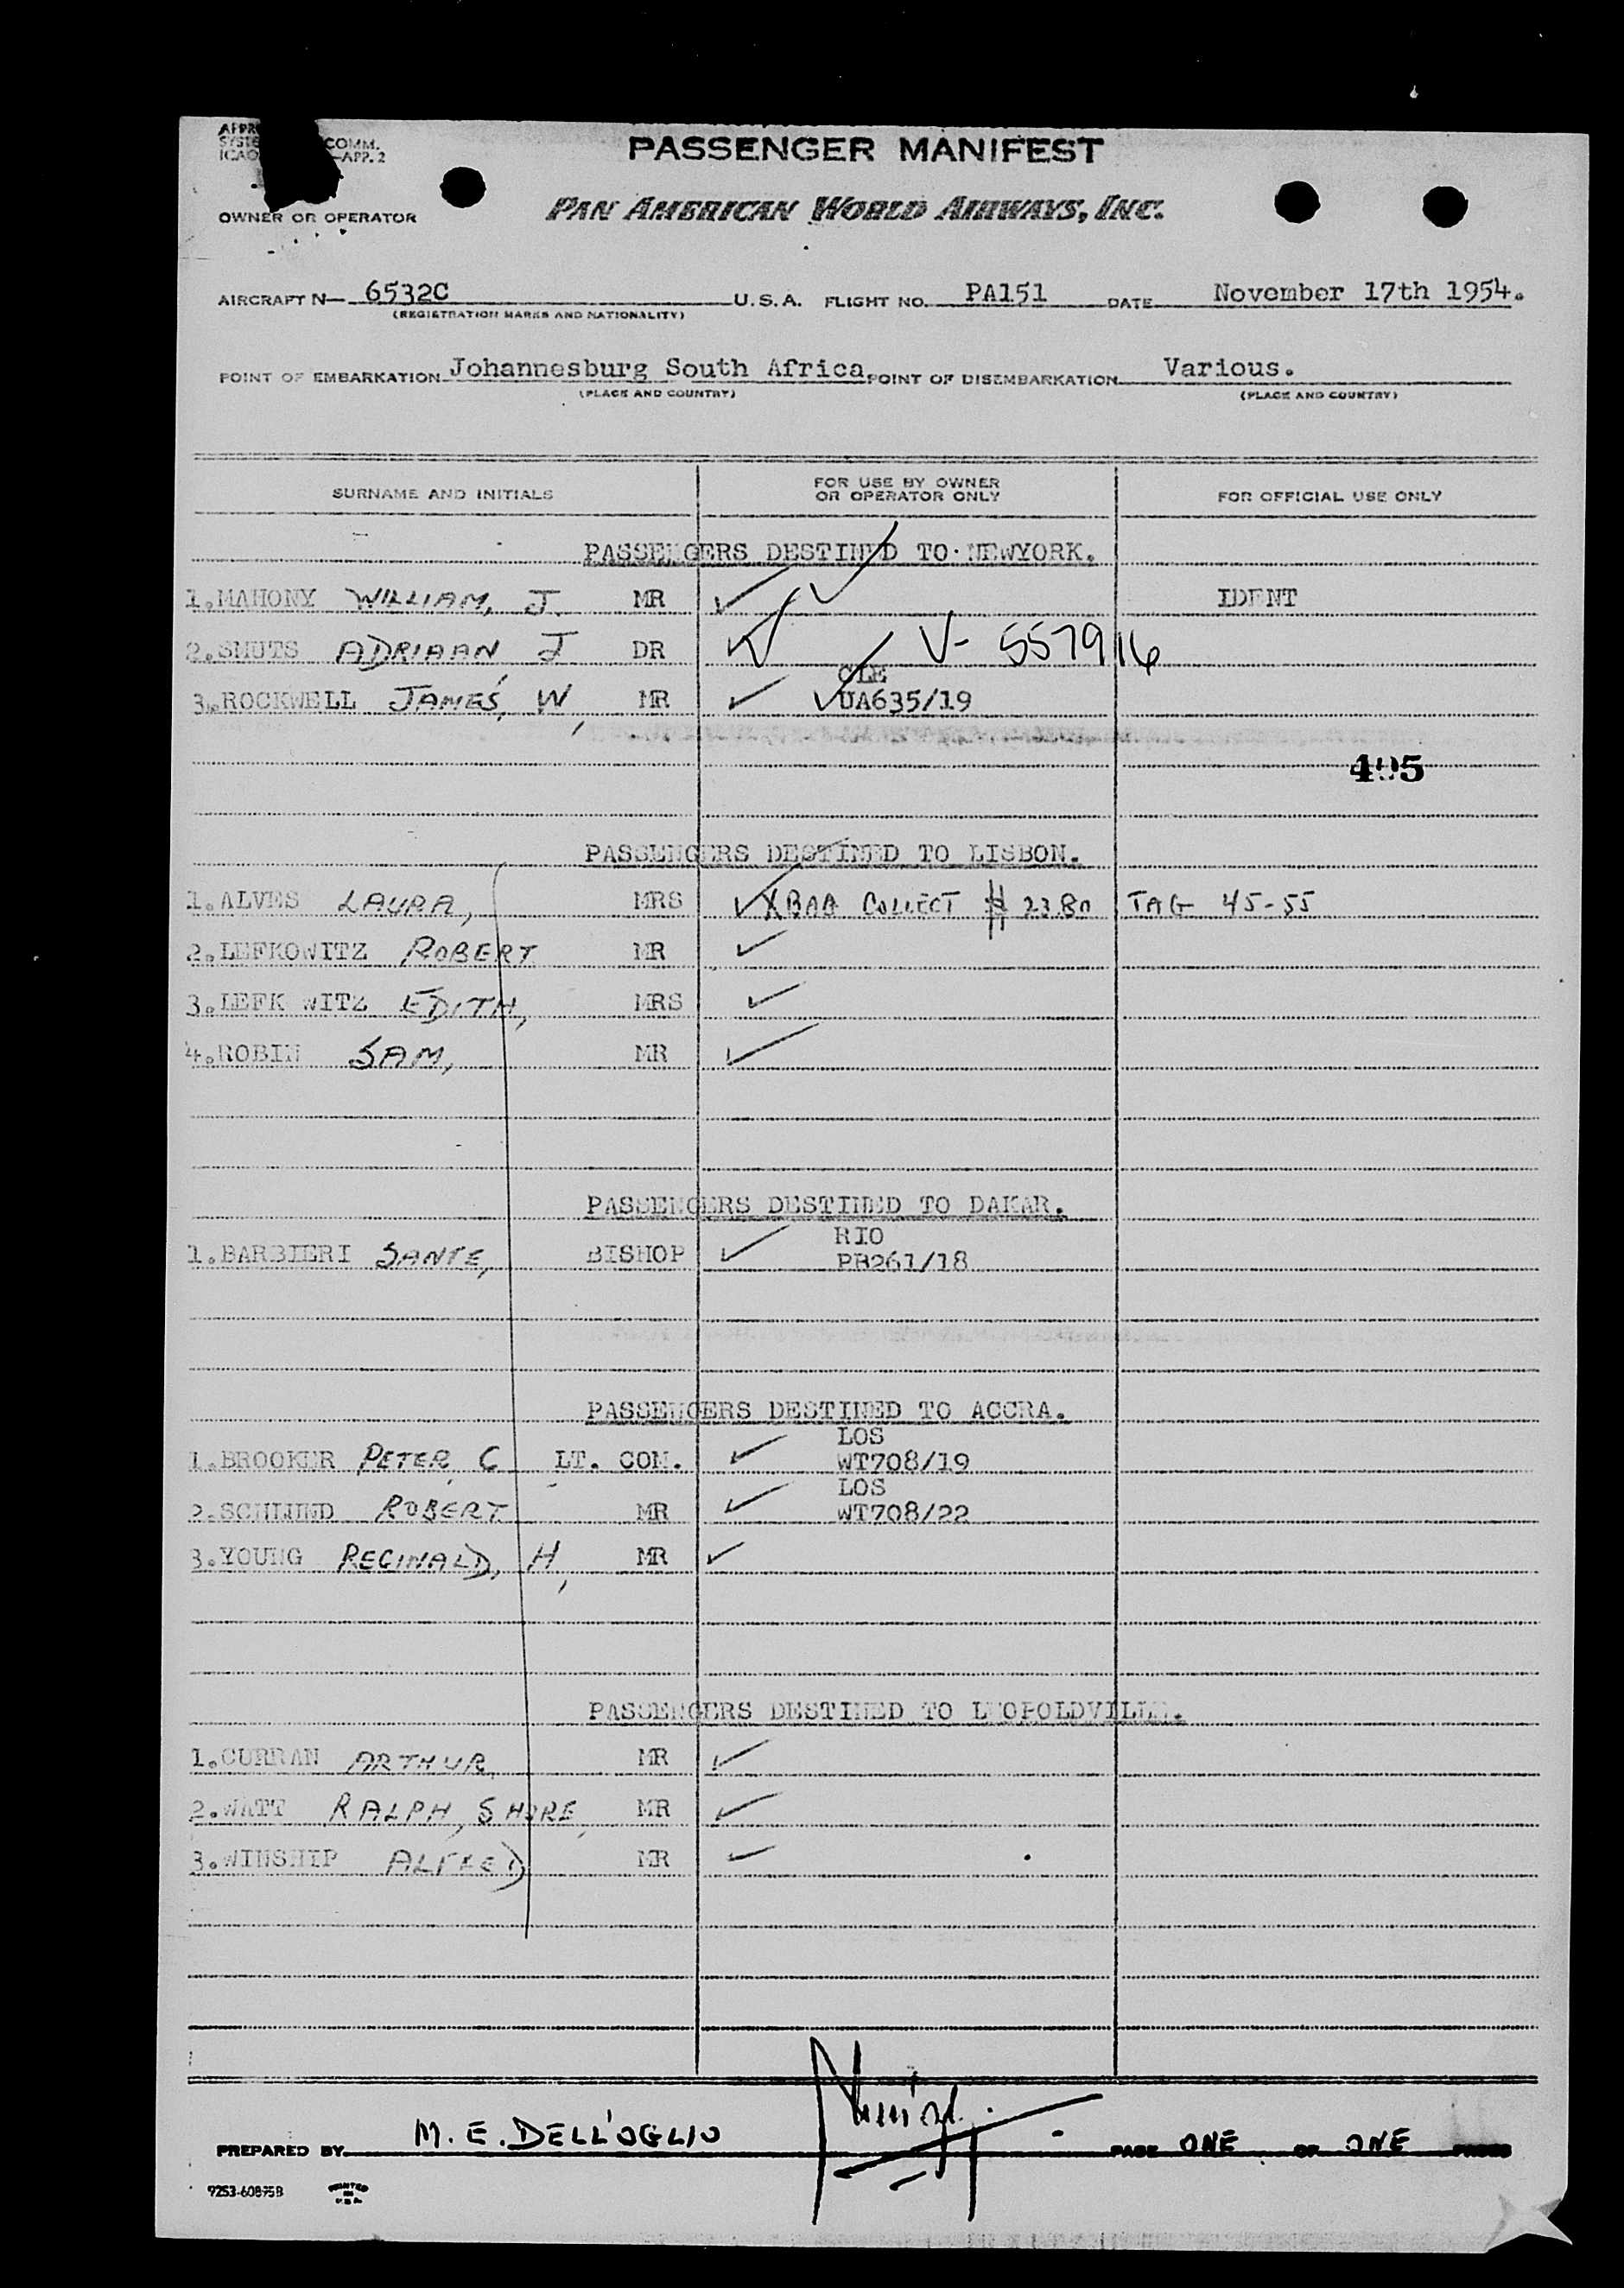 COMM.
APP. 2
PASSENGER MANIFEST
OWNER OR OPERATOR
PAN AMERICAN WORLD AIRWAYS, INC.
AIRCRAFT N— 6532C U.S.A. FLIGHT NO. PA151 DATE November 17th 1954.
(REGISTRATION MARKS AND NATIONALITY)
POINT OF EMBARKATION Johannesburg South Africa POINT OF DISEMBARKATION Various.
(PLACE AND COUNTRY) (PLACE AND COUNTRY)
SURNAME AND INITIALS FOR USE BY OWNER OR OPERATOR ONLY FOR OFFICIAL USE ONLY
PASSENGERS DESTINED TO NEWYORK.
1.MAHONY WILLIAM, J. MR IDENT
2.SMUTS ADRIAAN J DR V- 557916
CLE
3.ROCKWELL JAMES, W, MR UA635/19
495
PASSENGERS DESTINED TO LISBON.
1.ALVES LAURA, MRS XBAG COLLECT $ 23.80 TAG 45-55
2.LEFKOWITZ ROBERT MR
3.LEFK WITZ EDITH, MRS
4.ROBIN SAM, MR
PASSENGERS DESTINED TO DAKAR.
RIO
1.BARBIERI SANTE, BISHOP PB261/18
PASSENGERS DESTINED TO ACCRA.
LOS
1.BROOKER PETER C LT. COM. WT708/19
LOS
2. ROBERT MR WT708/22
3.YOUNG REGINALD, H, MR
PASSENGERS DESTINED TO LEOPOLDVILLE.
1.CURRAN ARTHUR MR
2.WATT RALPH, SHORE, MR
3.WINSHIP ALFRED MR
PREPARED BY M. E. DELL'OGLIO PAGE ONE OF ONE PAGES
9253-60895B PRINTED IN U.S.A.